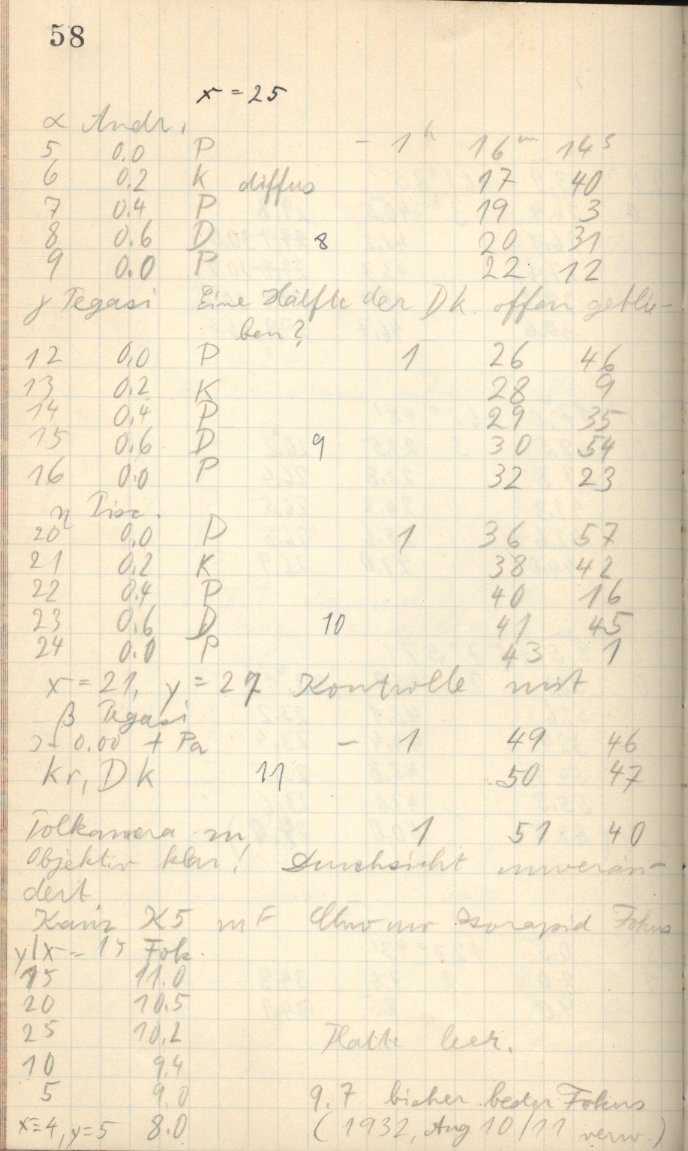 58
x = 25
α Andr.
5 0.0 P - 1h 16m 14s
6 0.2 K diffus 17 40
7 0.4 P 19 3
8 0.6 D 8 20 31
9 0.0 P 22 12
γ Pegasi Eine Hälfte der DK offen geblie-
ben?
12 0.0 P 1 26 46
13 0.2 K 28 9
14 0.4 P 29 35
15 0.6 D 9 30 54
16 0.0 P 32 23
η Pisc.
20 0.0 P 1 36 57
21 0.2 K 38 42
22 0.4 P 40 16
23 0.6 D 10 41 45
24 0.0 P 43 1
x = 21, y = 27 Kontrolle mit
β Pegasi
0.00 + Pa - 1 49 46
Kr, DK 11 50 47
Polkamera zu 1 51 40
Objektiv klar! Durchsicht unverän-
dert
K5 Isorapid Fokus
y/x = 15 Fok.
15 11.0
20 10.5
25 10.2 Platte leer.
10 9.4
5 9.0 9.7 bisher bester Fokus
x=4, y=5 8.0 (1932, Aug 10/11 verw.)